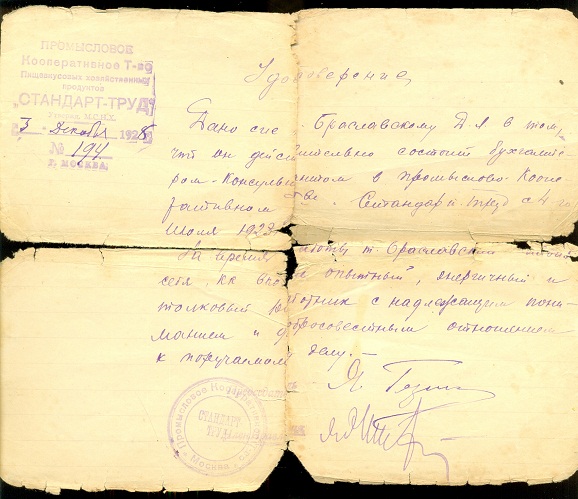 ПРОМЫСЛОВОЕ
Кооперативное Т-во
Пищевкусовых хозяйственных
продуктов
„СТАНДАРТ-ТРУД"
М.С.Н.Х.
3 Декабря 1928
№ 194
Г. МОСКВА.
Удостоверение
Дано сие Браславскому Д.Я в том,
что он действительно состоит бухгалте-
ром-консультантом в промыслово-Коопе-
ративном Стандарт-Труд с 1
Июля 1928
За время работы т. Браславский
опытный, энергичный и
толковый работник с надлежащим пони-
манием и добросовестным отношением
к поручаемому делу.—
Промысловое Кооперативное
СТАНДАРТ
ТРУД
Москва